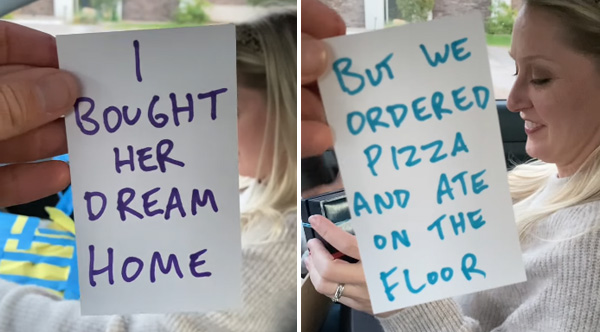 I
BOUGHT
HER
DREAM
HOME
BUT WE
ORDERED
PIZZA
AND ATE
ON THE
FLOOR